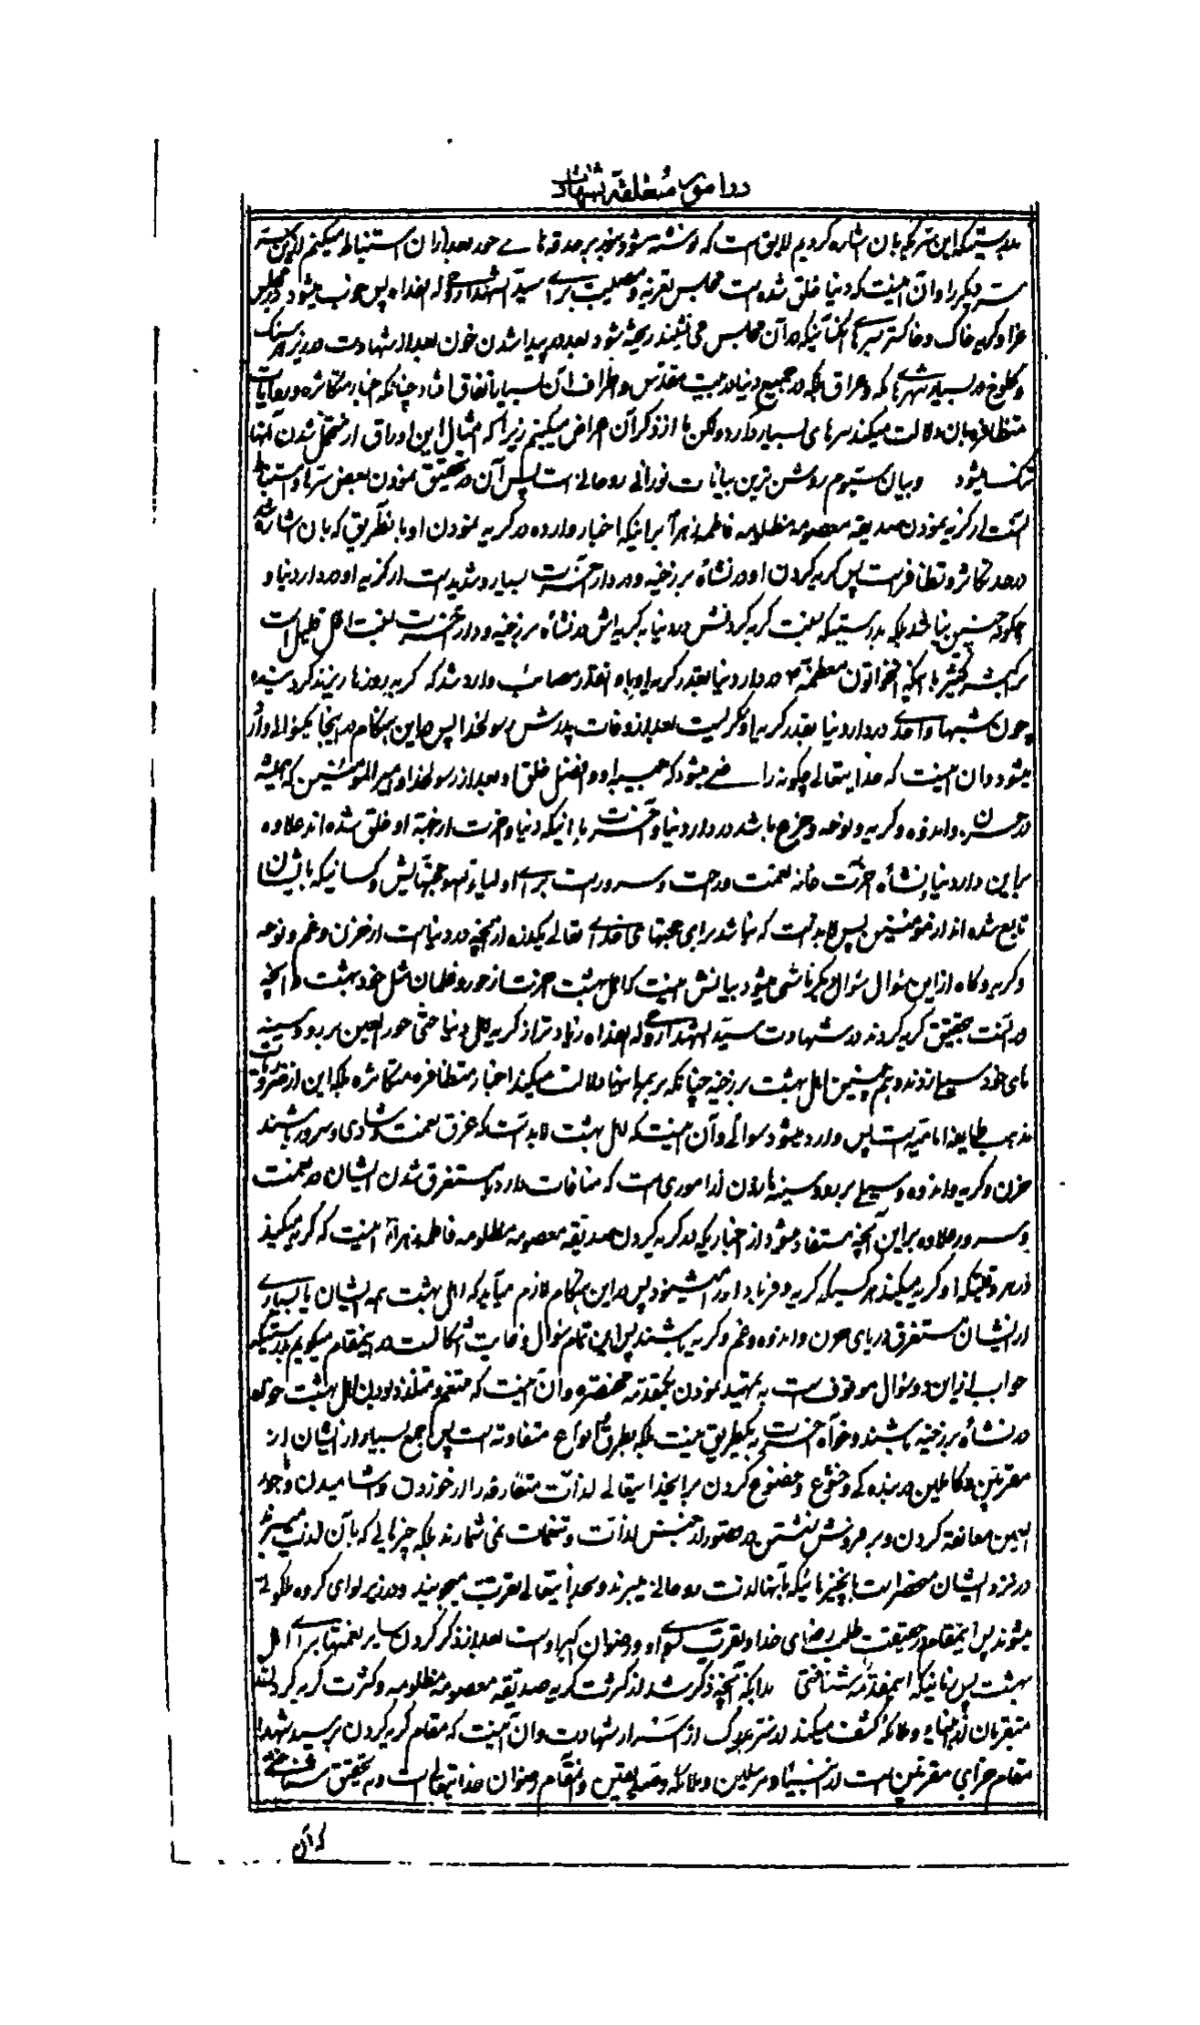 در امور متعلقه بشهادت
بدرستیکه این سر که بان اشاره کردیم لایق است که نوشته شود بنور بر حدقه های حور بعد از ان استنباط میکنیم از این سر
سر دیگر را و ان اینست که دنیا خلق شده است مجلس تعزیه و مصیبت برای سید الشهداء روحی له الفداء پس خوب میشود در مجلس
عزا و گریه خاک و خاکستر بسرهای کسانیکه در آن مجلس می نشینند ریخته شود بعد در پیدا شدن خون بعد از شهادت در زیر هر سنک
و کلوخ در بسیاری شهرها که در عراق بلکه در جمیع دنیا در بیت مقدس و اطراف آن بسیار اتفاق افتاد چنانکه اخبار متکاثره و روایات
متظافره بان دلالت میکند سرهای بسیار دارد ولکن ما از ذکر آن اعراض میکنیم زیرا که امثال این اوراق از متحمل شدن آنها
تنک میشود و بیان سیوم روشن ترین بیانات نورانی روحانی است پس آن در تحقیق نمودن بعض سرها و استنباط
آنست از گریه نمودن صدیقه معصومه مظلومه فاطمه زهرا برای اینکه اخبار وارده در گریه نمودن او بانطریق که بان اشاره شد
در حد تکاثر و تظافر است پس گریه کردن او در نشأه برزخیه و در دار آخرت بسیار و شدید است از گریه او در دار دنیا و
چگونه چنین نباشد بلکه بدرستیکه نسبت گریه کردنش در دنیا به گریه اش در نشأه برزخیه و دار آخرت نسبت اقل قلیل است
بر اکثر کثیر با اینکه آنخاتون معظمه در دار دنیا بقدر گریه او باو انقدر مصائب وارد شد که گر بروزها ریزند گردیدند
چون شبها و احدی در دار دنیا بقدر گریه او نگریست بعد از وفات پدرش رسولخدا پس در این هنکام در اینجا یکسوال وارد
میشود و ان اینست که خدایتعالی چکونه راضی میشود که حبیبه او و افضل خلق او بعد از رسولخدا و امیر المومنین که همیشه
در حزن و اندوه و گریه و نوحه و جزع باشد در دار دنیا و آخرت با اینکه دنیا و آخرت از محبة او خلق شده اند علاوه
بر این دار دنیا و نشأه آخرت خانه نعمت و راحت و سرور است برای اولیاء او و محبانش و کسانیکه با ایشان
تابع شده اند از مومنین پس لابد است که نباشد برای محبتهای خدای تعالی یکذره از آنچه در دنیاست از حزن و غم و نوحه
و گریه و گاه از این سؤال سؤال دیکر ناشی میشود بیانش اینست که اهل بهشت آخرت از حور و غلمان مثل خود بهشت و آنچه
در آنست حقیقتا گریه کردند در شهادت سید الشهداء روحی له الفداه زیادتر از گریه اهل دنیا حتی حور العین بر رو و سینه
های خود سیلی زدند و هم چنین اهل بهشت برزخیه چنانکه بر همه اینها دلالت میکند اخبار متظافره متکاثره بلکه این از ضروریات
مذهب طایفه امامیه است پس وارد میشود سوالی و آن اینست که اهل بهشت لابد است که غرق نعمت و شادی و سرور باشند
حزن و گریه و اندوه و سیلی بر رو و سینه ها زدن از اموری است که منافات دارد با مستغرق شدن ایشان در نعمت
و سرور علاوه بر این آنچه مستفاد میشود از اخباریکه در گریه کردن صدیقه معصومه مظلومه فاطمه زهراء اینست که گریه میکنند
در هر وقتیکه او گریه میکند هر کسیکه گریه و فریاد او را میشنود پس در این هنکام لازم میاید که اهل بهشت همه ایشان یا بسیاری
از ایشان مستغرق دریای حزن و اندوه و غم و گریه باشند پس این تمام سؤال و غایت اشکالست در اینمقام میگویم بدرستیکه
جواب از این دو سؤال موقوف است به تمهید نمودن یکمقدمه مختصره و آن اینست که متنعم و متلذذ بودن اهل بهشت خواه
در نشأه برزخیه باشند و خواه آخرت به یکطریق نیست بلکه بطرق و انواع متفاوته است پس جمع بسیاری از ایشان از
مقربین و کاملین در بنده گی و خشوع و خضوع کردن برای خدایتعالی لذات متعارفه را از خوردن و اشامیدن و حور
العین معانقه کردن و بر فروش نشستن و در قصور از جنس لذات و تنعمات نمی شمارند بلکه چیزهائی که بآن لذت میبرند
در نزد ایشان منحصر است بچیزهائیکه بآنها لذت روحانی میبرند و بخدایتعالی تقرب میجویند و در زیر لوای گروه ملکوتی
میشوند پس اینمقام در حقیقت طلب رضای خدا و تقرب بسوی او و رضوان کبرای اوست بعد از ذکر کردن سایر نعمتها برای اهل
بهشت پس زمانیکه اینمقدمه شناختی بدانکه آنچه ذکر شد از کثرت گریه صدیقه معصومه مظلومه و کثرت گریه کردنند
مقربان از انبیاء و ملائکه کشف میکند از سر بزرک از اسرار شهادت و آن اینست که مقام گریه کردن بر سید شهدا
مقام جزای مقربین است از انبیاء و مرسلین و ملائکه و صدیقین و آنمقام رضوان خدایتعالی است و به تحقیق شناختی
که آن